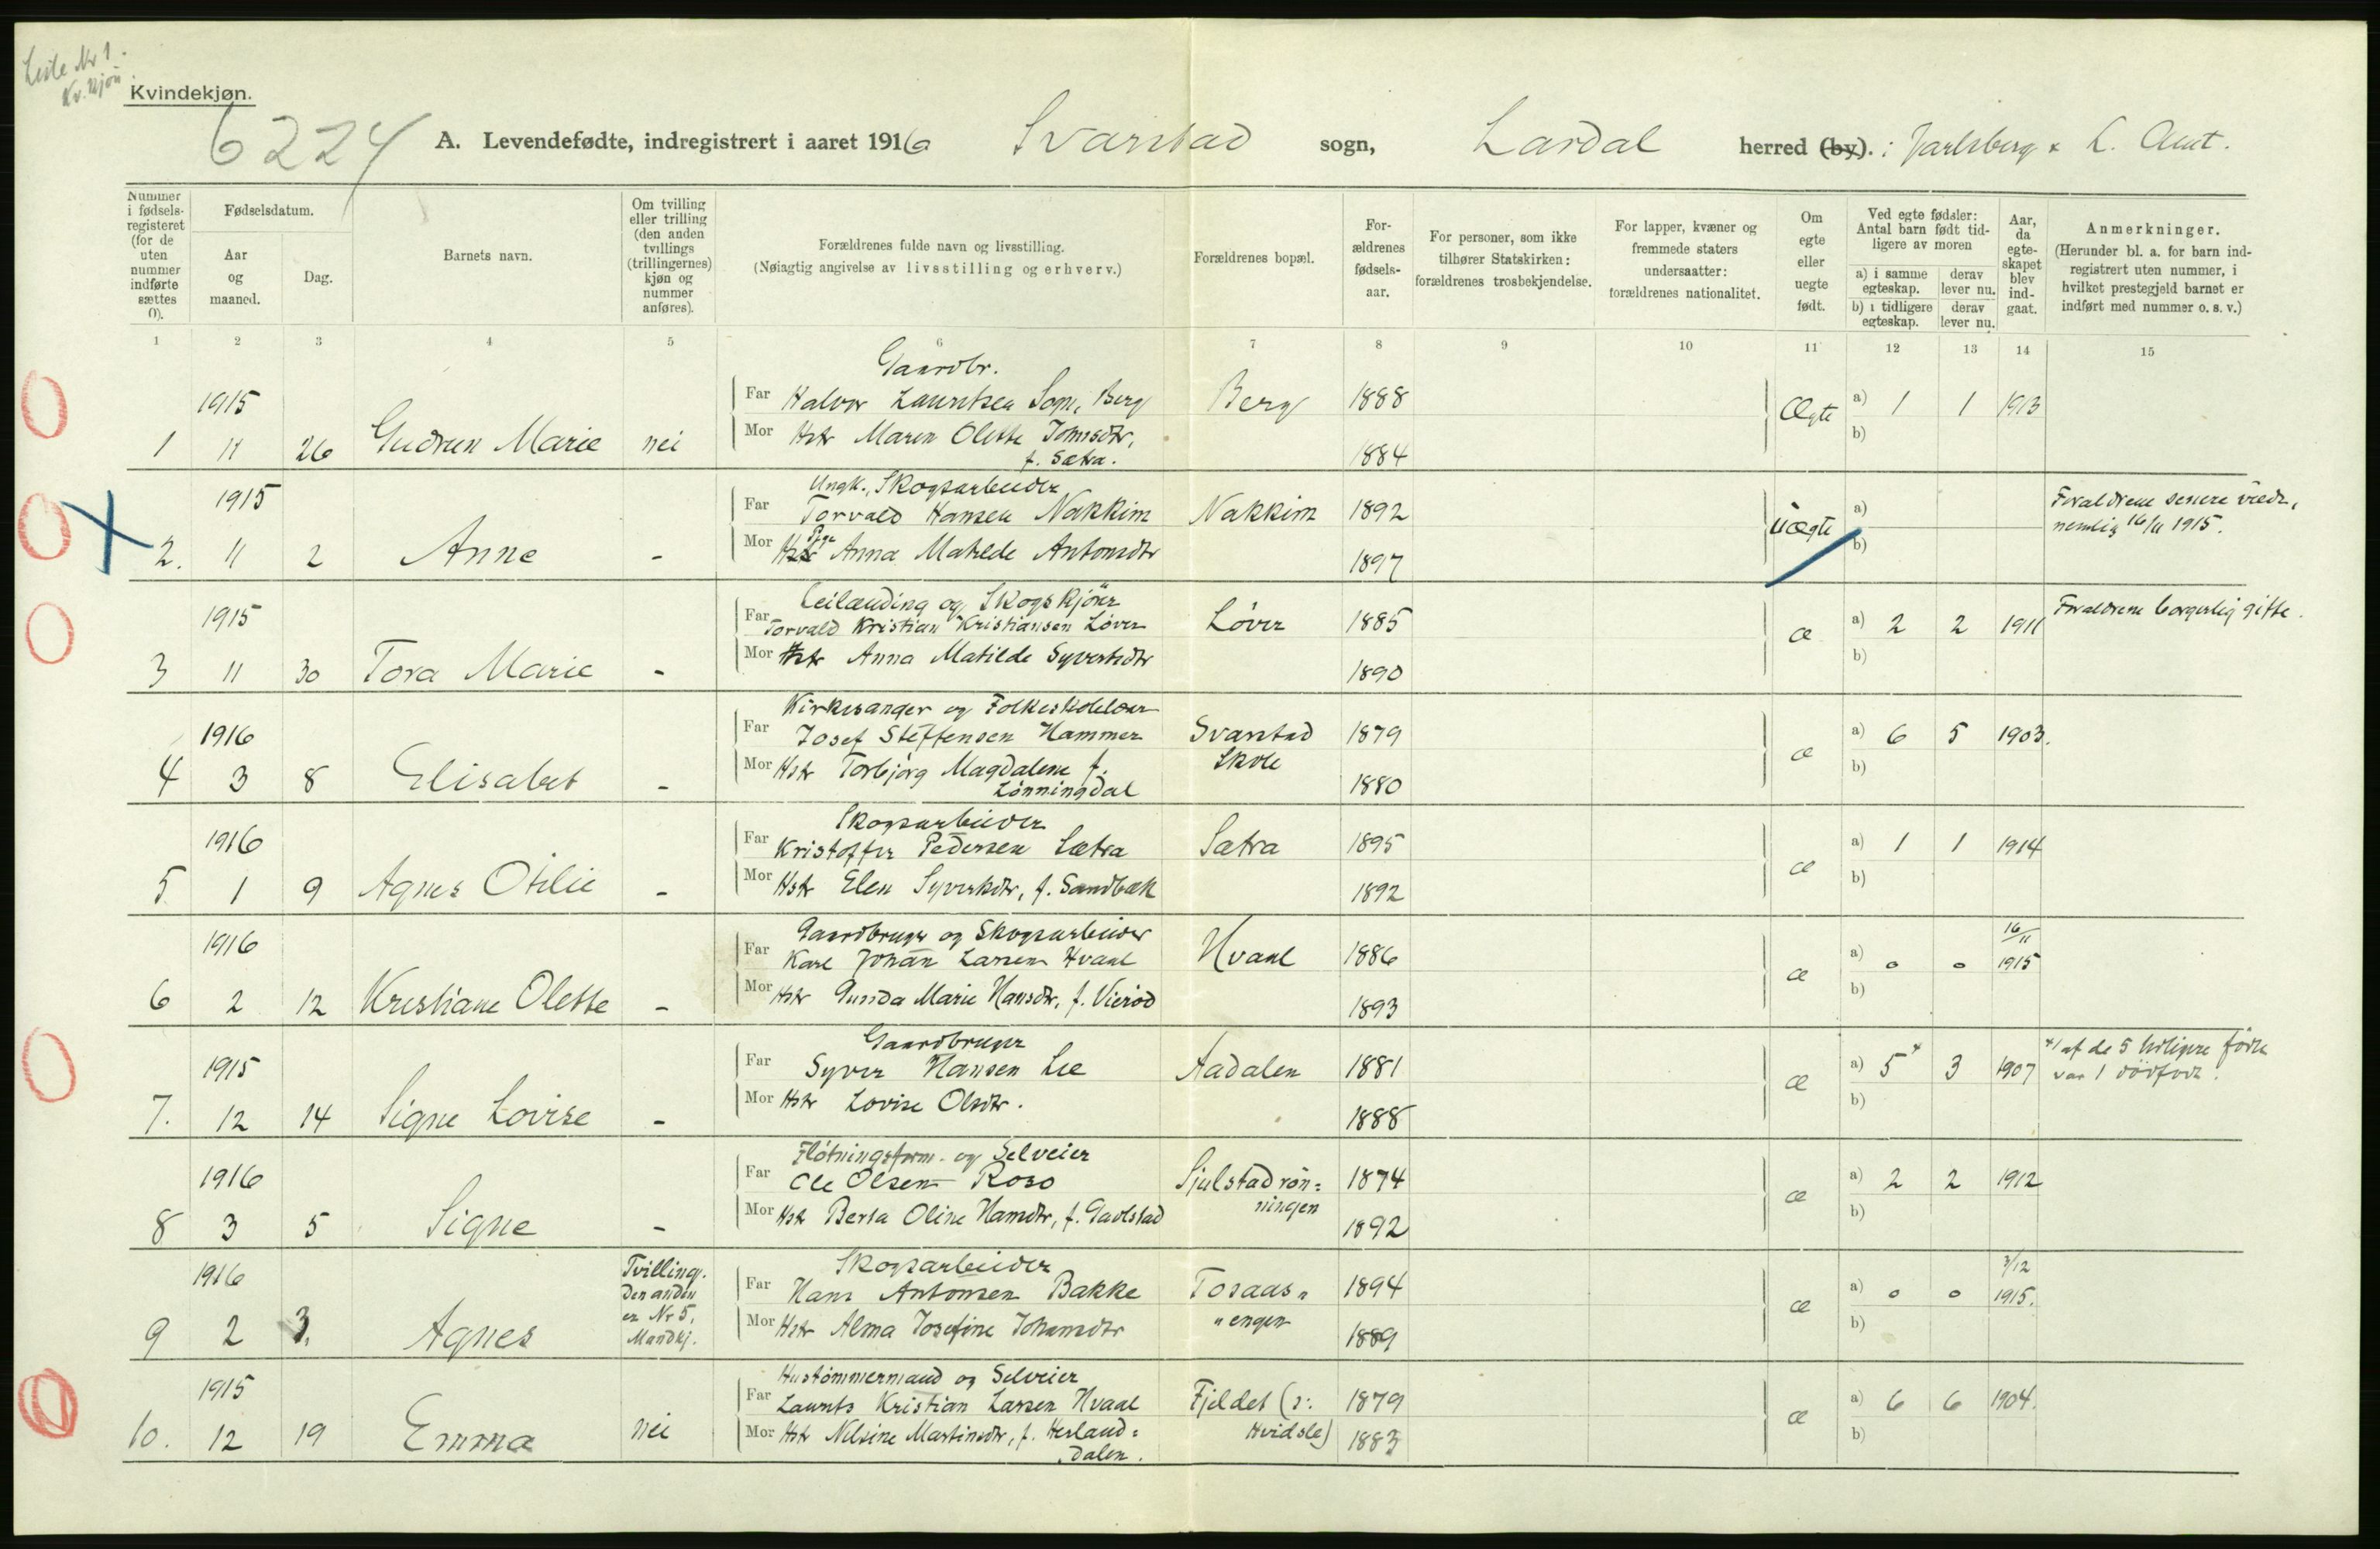 Liste Nr 1.
Kv. kjøn.
Kvindekjøn.
6224
A. Levendefødte, indregistrert i aaret 1916 Svarstad sogn, Lardal herred (by). : Jarlsberg & L. Amt.
Nummer i fødsels-registeret (for de uten nummer indførte sættes 0).
Fødselsdatum.
Aar og maaned.
Dag.
Barnets navn.
Om tvilling eller trilling (den anden tvillings (trillingernes) kjøn og nummer anføres).
Forældrenes fulde navn og livsstilling.
(Nøiagtig angivelse av livsstilling og erhverv.)
Forældrenes bopæl.
For-ældrenes fødsels-aar.
For personer, som ikke tilhører Statskirken: forældrenes trosbekjendelse.
For lapper, kvæner og fremmede staters undersaatter: forældrenes nationalitet.
Om egte eller uegte født.
Ved egte fødsler: Antal barn født tid-ligere av moren
a) i samme egteskap.
derav lever nu.
b) i tidligere egteskap.
derav lever nu.
Aar, da egte-skapet blev ind-gaat.
Anmerkninger.
(Herunder bl. a. for barn ind-registrert uten nummer, i hvilket prestegjeld barnet er indført med nummer o. s. v.)
1 2 3 4 5 6 7 8 9 10 11 12 13 14 15
Gaardbr.
1915 Far Halvor Lauritsen Sope, Berg Berg 1888 Ægte a) 1 1 1913
1 11 26 Gudrun Marie nei Mor Hstr Maren Olette Johnsdtr, b)
f. Sætra. 1884
Ungk., Skogsarbeider
1915 Far Torvald Hansen Nakkim Nakkim 1892 Uægte a) Forældrene senere viede,
nemlig 16/11 1915.
2. 11 2 Anne - Mor Hstr Pige Anna Matilde Antonsdtr 1897 b)
Leilænding og Skogskjører
1915 Far Torvald Kristian Kristiansen Løver Løver 1885 æ a) 2 2 1911 Forældrene borgerlig gifte.
3 11 30 Tora Marie - Mor Hstr Anna Matilde Syvertsdtr 1890 b)
Kirkesanger og Folkeskolelærer
1916 Far Josef Steffensen Hammer Svarstad 1879 æ a) 6 5 1903.
4 3 8 Elisabet - Mor Hstr Torbjørg Magdalene f. Skole b)
Lønningdal 1880
Skogsarbeider
1916 Far Kristoffer Pedersen Sætra Sætra 1895 æ a) 1 1 1914
5 1 9 Agnes Otilie - Mor Hstr Elen Syvertsdtr, f. Sandbæk 1892 b)
Gaardbruger og Skogsarbeider 16/11
1916 Far Karl Johan Larsen Hvaal Hvaal 1886 æ a) 0 0 1915
6 2 12 Kristiane Olette - Mor Hstr Gunda Marie Hansdtr, f. Vierød 1893 b)
Gaardbruger
1915 Far Syver Hansen Lie Aadalen 1881 æ a) 5x 3 1907 x) af de 5 tidligere fødte
var 1 dødfødt.
7. 12 14 Signe Lovise - Mor Hstr Lovise Olsdtr. 1888 b)
Fløtningsform. og Selveier
1916 Far Ole Olsen Roso Sjulstadrøn= 1874 æ a) 2 2 1912
8 3 5 Signe - Mor Hstr Berta Oline Hansdtr, f. Gavlstad ningen 1892 b)
Skogsarbeider 3/12
1916 Tvilling. Far Hans Antonsen Bakke Tosaas= 1894 æ a) 0 0 1915.
Den anden
er Nr 5,
9 2 3. Agnes Mandkj. Mor Hstr Alma Josefine Johansdtr "engen 1889 b)
Hustømmermand og Selveier
1915 Far Laurits Kristian Larsen Hvaal Fjeldet (ɔ: 1879 æ a) 6 6 1904.
10. 12 19 Emma nei Mor Hstr Nilsine Martinsdtr, f. Herland= Hvidsle) 1883 b)
dalen.